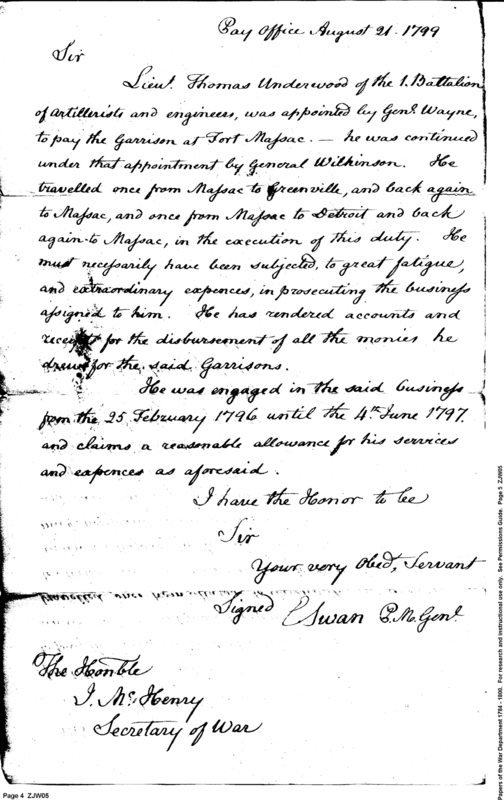 Pay Office August 21. 1799
Sir
Lieut. Thomas Underwood of the 1. Battalion
of artillerists and engineers, was appointed by Genl. Wayne,
to pay the Garrison at Fort Massac. — he was continued
under that appointment by General Wilkinson. He
travelled once from Massac to Greenville, and back again
to Massac, and once from Massac to Detroit and back
again to Massac, in the execution of this duty. He
must necessarily have been subjected, to great fatigue,
and extraordinary expences, in prosecuting the business
assigned to him. He has rendered accounts and
receipts for the disbursement of all the monies he
drew for the said Garrisons.
He was engaged in the said business
from the 25 February 1796 until the 4th June 1797.
and claims a reasonable allowance for his services
and expences as aforesaid.
I have the Honor to be
Sir
Your very Obedt, Servant
Signed Swan P. M. Genl.
The Honble
J. McHenry
Secretary of War
Page 4 ZJW05
Papers of the War Department 1784 - 1800. For research and instructional use only. See Permissions Guide. Page 5 ZJW05